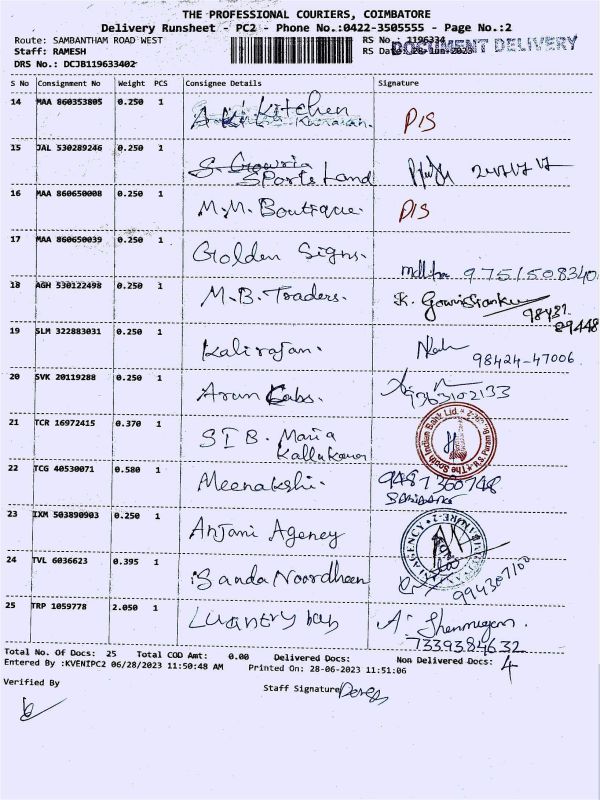 THE PROFESSIONAL COURIERS, COIMBATORE
Delivery Runsheet - PC2 - Phone No.:0422-3505555 - Page No.:2
Route: SAMBANTHAM ROAD WEST RS No.: 1196334
Staff: RAMESH RS Date: 28-Jun-2023 DOCUMENT DELIVERY
DRS No.: DCJB119633402
S No Consignment No Weight PCS Consignee Details Signature
14 MAA 860353805 0.250 1 Kitchen D/S
15 JAL 530289246 0.250 1 S. Gowria
Sports Land
16 MAA 860650008 0.250 1 M.M. Boutique. D/S
17 MAA 860650039 0.250 1 Golden Signs. 9751508340
18 AGH 530122498 0.250 1 M.B. Traders. K. Gowrisanku
98431
29448
19 SLM 322883031 0.250 1 Kalirajan. 98424-47006
20 SVK 20119288 0.250 1 Arun Cabs. 9363102133
21 TCR 16972415 0.370 1 S I B. Maria The South Indian Bank Ltd.
22 TCG 40530071 0.580 1 Meenakshi. 9487360748
23 IXM 503890903 0.250 1 Anjani Agency AGENCY
24 TVL 6036623 0.395 1 Sanda Noordheen 994307100
25 TRP 1059778 2.050 1 A. Shenmugam.
7339384632
Total No. Of Docs: 25 Total COD Amt: 0.00 Delivered Docs: Non Delivered Docs: 4
Entered By :KVENIPC2 06/28/2023 11:50:48 AM Printed On: 28-06-2023 11:51:06
Verified By Staff Signature